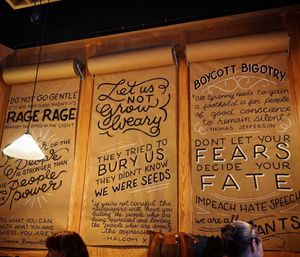 DO NOT GO GENTLE
INTO THAT GOOD NIGHT
RAGE RAGE
AGAINST THE DYING OF THE LIGHT
THE POWER
OF THE PEOPLE
IS STRONGER
THAN THE
People
in power
DO WHAT YOU CAN
WITH WHAT YOU HAVE
WHERE YOU ARE
Theodore Roosevelt
Let us
NOT
grow
weary
THEY TRIED TO
BURY US
THEY DIDN'T KNOW
WE WERE SEEDS
"if you're not careful, the
newspapers will have you
hating the people who are
being oppressed and loving
the people who are doing
the oppressing"
-MALCOLM X
BOYCOTT BIGOTRY
"all tyranny needs to gain
a foothold is for people
of good conscience
to remain silent
-THOMAS JEFFERSON
DONT LET YOUR
FEARS
DECIDE YOUR
FATE
IMPEACH HATE SPEECH
we are all